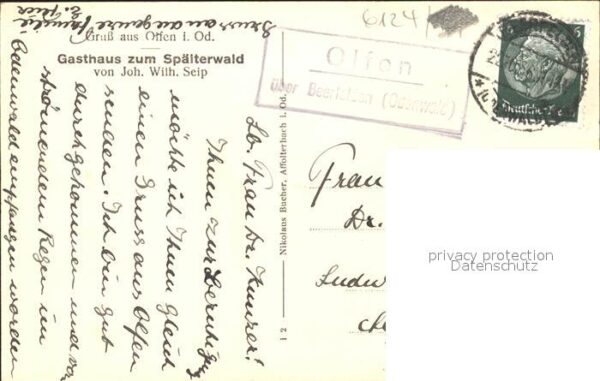 Gruß aus Olfen i. Od.
Gasthaus zum Spälterwald
von Joh. Wilh. Seip
6124/
Olfen
über Beerfelden (Odenwald)
5
Deutsches Reich
Nikolaus Bucher, Affolterbach i. Od.
1 2
Lb. Frau Dr. Knurer!
Ihnen zur Beruhigung
möchte ich Ihnen gleich
einen Gruss aus Olfen
senden. Ich bin gut
durchgekommen und von
strömendem Regen im
Odenwald empfangen worden
Gruss an die ganze Familie
Frau
Dr.
Ludw
privacy protection
Datenschutz